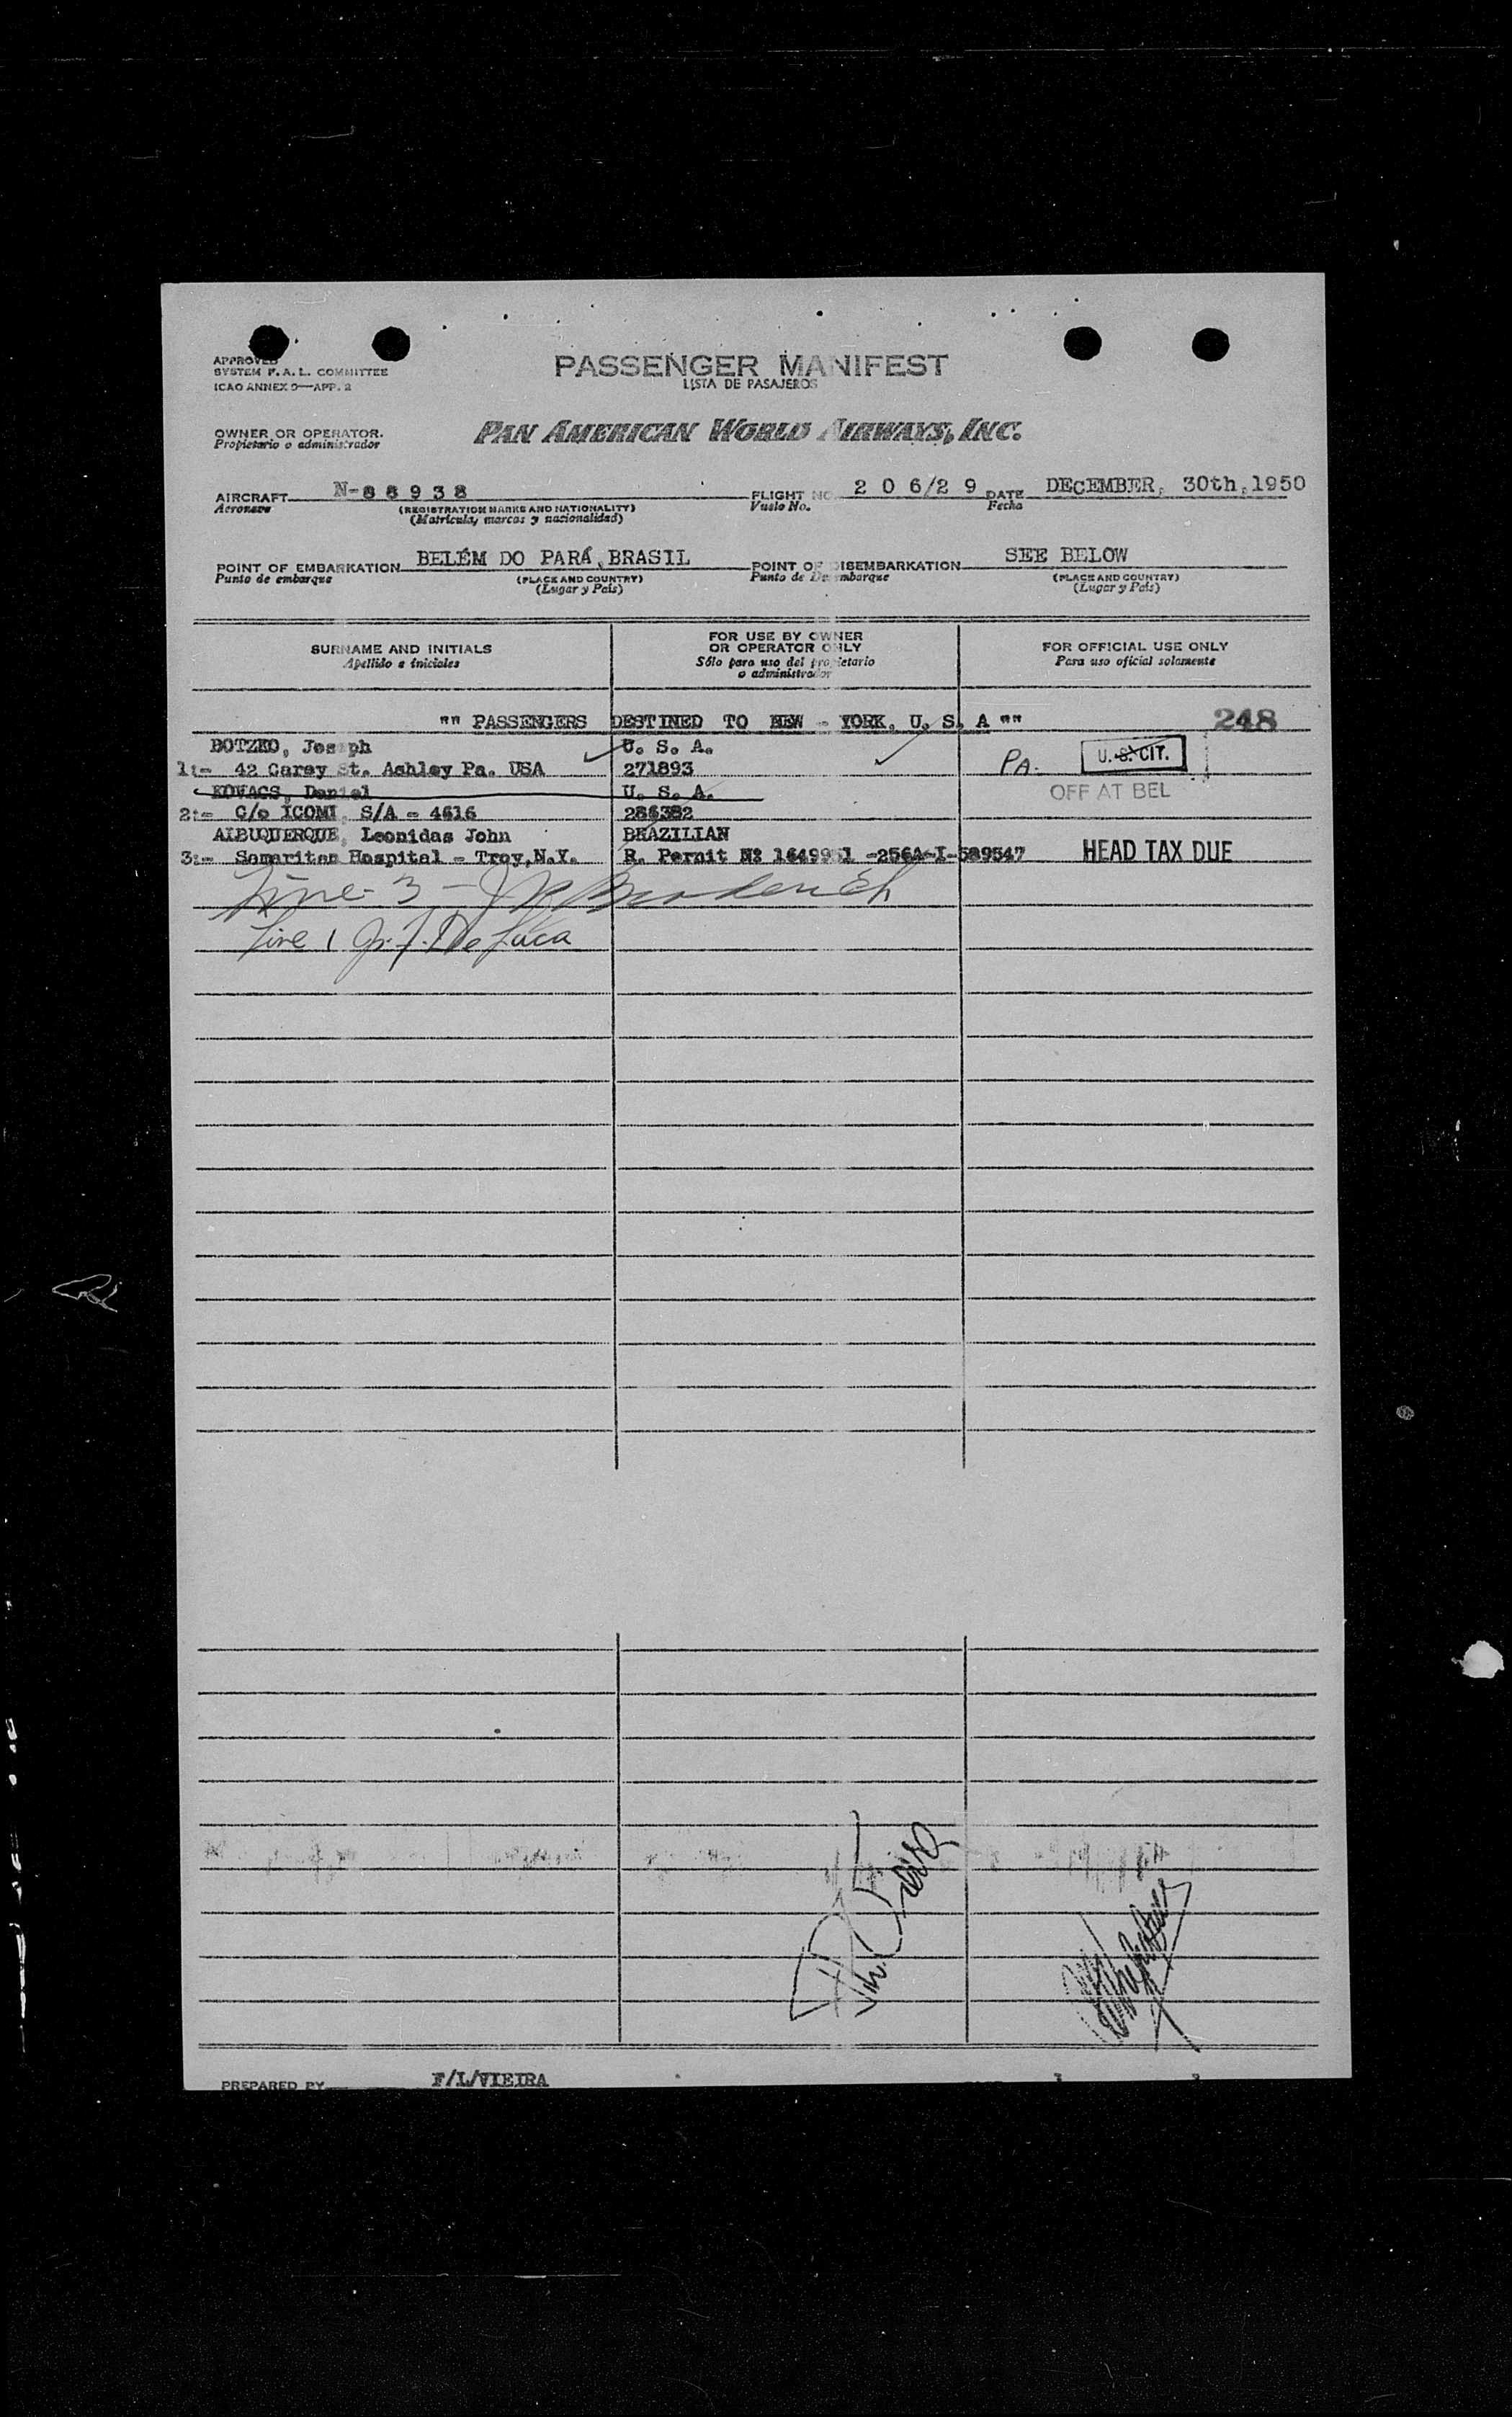 APPROVED
SYSTEM F.A.L. COMMITTEE
ICAO ANNEX 9—APP. 2
PASSENGER MANIFEST
LISTA DE PASAJEROS
OWNER OR OPERATOR.
Propietario o administrador
PAN AMERICAN WORLD AIRWAYS, INC.
AIRCRAFT N-88938 FLIGHT NO. 2 0 6/2 9 DATE DECEMBER, 30th,1950
Aeronave (REGISTRATION MARKS AND NATIONALITY) Vuelo No. Fecha
(Matrícula, marcas y nacionalidad)
POINT OF EMBARKATION BELÉM DO PARÁ, BRASIL POINT OF DISEMBARKATION SEE BELOW
Punto de embarque (PLACE AND COUNTRY) Punto de Desembarque (PLACE AND COUNTRY)
(Lugar y País) (Lugar y País)
SURNAME AND INITIALS
Apellido e iniciales
FOR USE BY OWNER
OR OPERATOR ONLY
Sólo para uso del propietario
o administrador
FOR OFFICIAL USE ONLY
Para uso oficial solamente
"" PASSENGERS DESTINED TO NEW - YORK, U. S. A "" 248
BOTZKO, Joseph U. S. A.
1:- 42 Carey St. Ashley Pa. USA 271893 PA. U.S. CIT.
KOVACS, Daniel U. S. A. OFF AT BEL
2:- C/o ICOMI, S/A - 4616 286382
ALBUQUERQUE, Leonidas John BRAZILIAN
3:- Samaritan Hospital - Troy, N.Y. R. Permit Nº 1649951 -256A-I-589547 HEAD TAX DUE
Line - 3 -
Line 1 J. J. De Luca
PREPARED BY F/L/VIEIRA